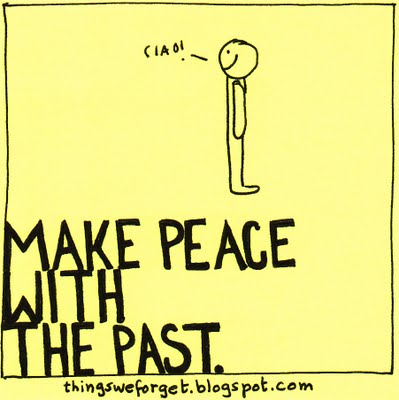 CIAO!
MAKE PEACE
WITH
THE PAST.
thingsweforget.blogspot.com